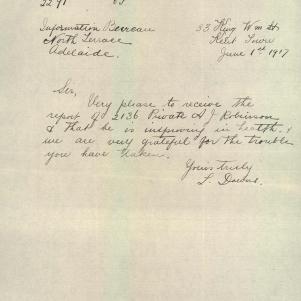 2291
Information Bureau 33 King Wm St
North Terrace Kent Town
Adelaide. June 1st 1917
Sir,
Very please to receive the
report of 2136 Private A J Robinson
& that he is improving in health. &
we are very grateful for the trouble
you have taken.
Yours truly
L.